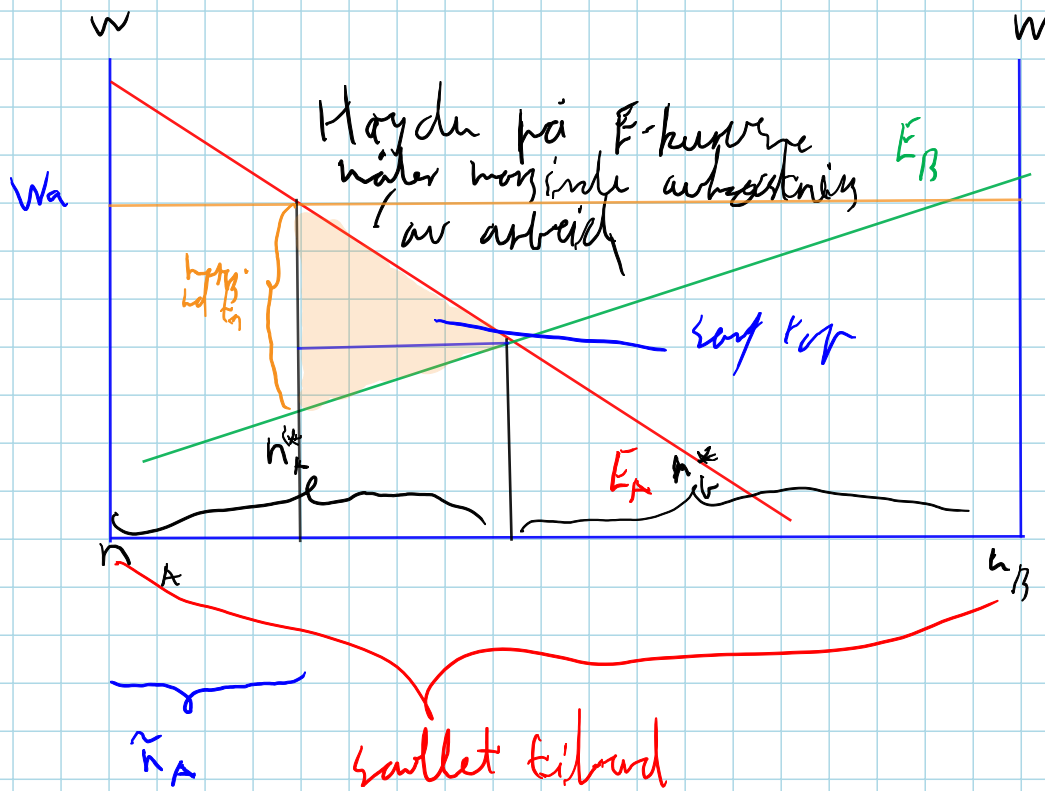 W
W
Høyden på E-kurvene
måler marginale avkastning
av arbeid
E_B
Wa
samf tap
n*_A
E_A
n*_B
n_A
n_B
ñ_A
samlet tilbud